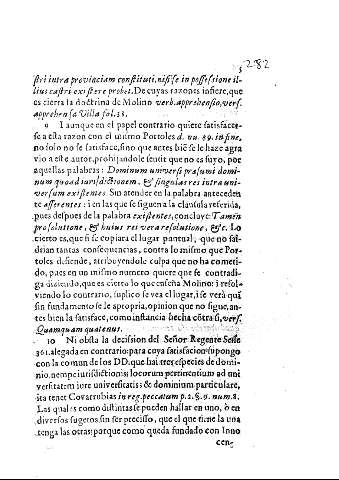 282
stri intra provinciam constituti, nisi se in possessione il-
lius castri existere probet. De cuyas razones infiere, que
es cierta la doctrina de Molino verb. apprehensio, vers.
apprehensa Villa fol. 28.
9 I aunque en el papel contrario quiere satisfacer-
se a esta razon con el mismo Portoles d. nu. 89. in fine,
no solo no se satisface, sino que antes biē se le haze agra
vio a este autor, prohijandole sentir que no es suyo, por
aquellas palabras: Dominum universi præsumi domi-
num quoad iurisdictionem, & singulas res intra uni-
versum existentes. Sin atender en la palabra anteceden
te asserentes: i en las que se siguen a la clausula referida,
pues despues de la palabra existentes, concluye: Tamēn
pro solutione, & huius rei vera resolutione, &c. Lo
cierto es, que si se copiara el lugar puntual, que no sal-
drian tantas consequencias, contra lo mismo que Por-
toles defiende, atribuyendole culpa que no ha cometi-
do, pues en un mismo numero quiere que se contradi-
ga diziendo, que es cierto lo que enseña Molino: i resol-
viendo lo contrario, suplico se vea el lugar, i se verà què
sin fundamento se le apropria, opinion que no sigue, an-
tes bien la satisface, como instancia hecha cōtra si, vers.
Quamquam quatenus.
10 Ni obsta la decision del Señor Regente Sesse
361. alegada en contrario: para cuya satisfacion supongo
con la comun de los DD. que hai tres especies de domi-
nio, nempe iurisdictionis; locorum pertinentium ad uni
versitatem iore universitatis; & dominium particulare,
ita tenet Covarrubias in reg. peccatum p. 2. §. 9. num. 8.
Las quales como distintas se pueden hallar en uno, ò en
diversos sugetos, sin ser precisso, que el que tiene la una
tenga las otras; porque como queda fundado con Inno
cen-